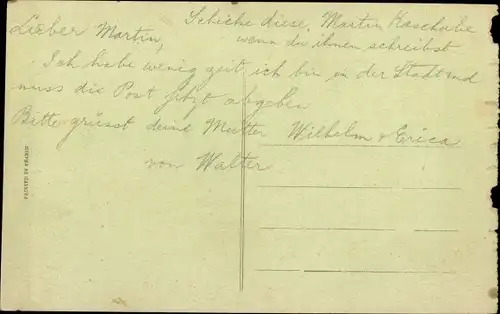 Lieber Martin,
Schicke diese, Martin Kaschube
wenn du ihnen schreibst
Ich habe wenig zeit ich bin in der Stadt und
muss die Post jetzt abgeben
Bitte grüsst deine Mutter Wilhelm & Erica
von Walter
PRINTED IN